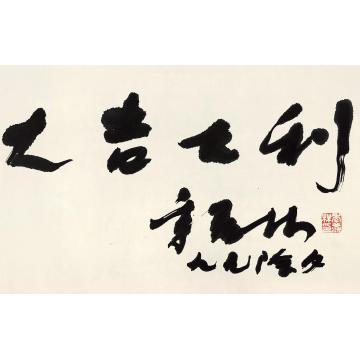 大吉大利
九九除夕